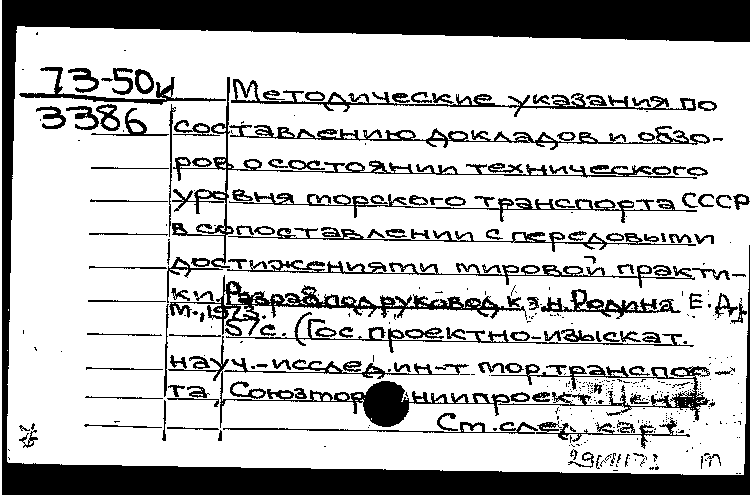 73-50к Методические указания по
3386 составлению докладов и обзо-
ров о состоянии технического
уровня морского транспорта СССР
в сопоставлении с передовыми
достижениями мировой практи-
ки. Разраб. под руковод. к.э.н. Родина Е.Д.
М., 1973.
57с. (Гос. проектно-изыскат.
науч.-исслед. ин-т мор. транспор-
та "Союзмор НИИпроект". Центр.
См. след. карт.
м